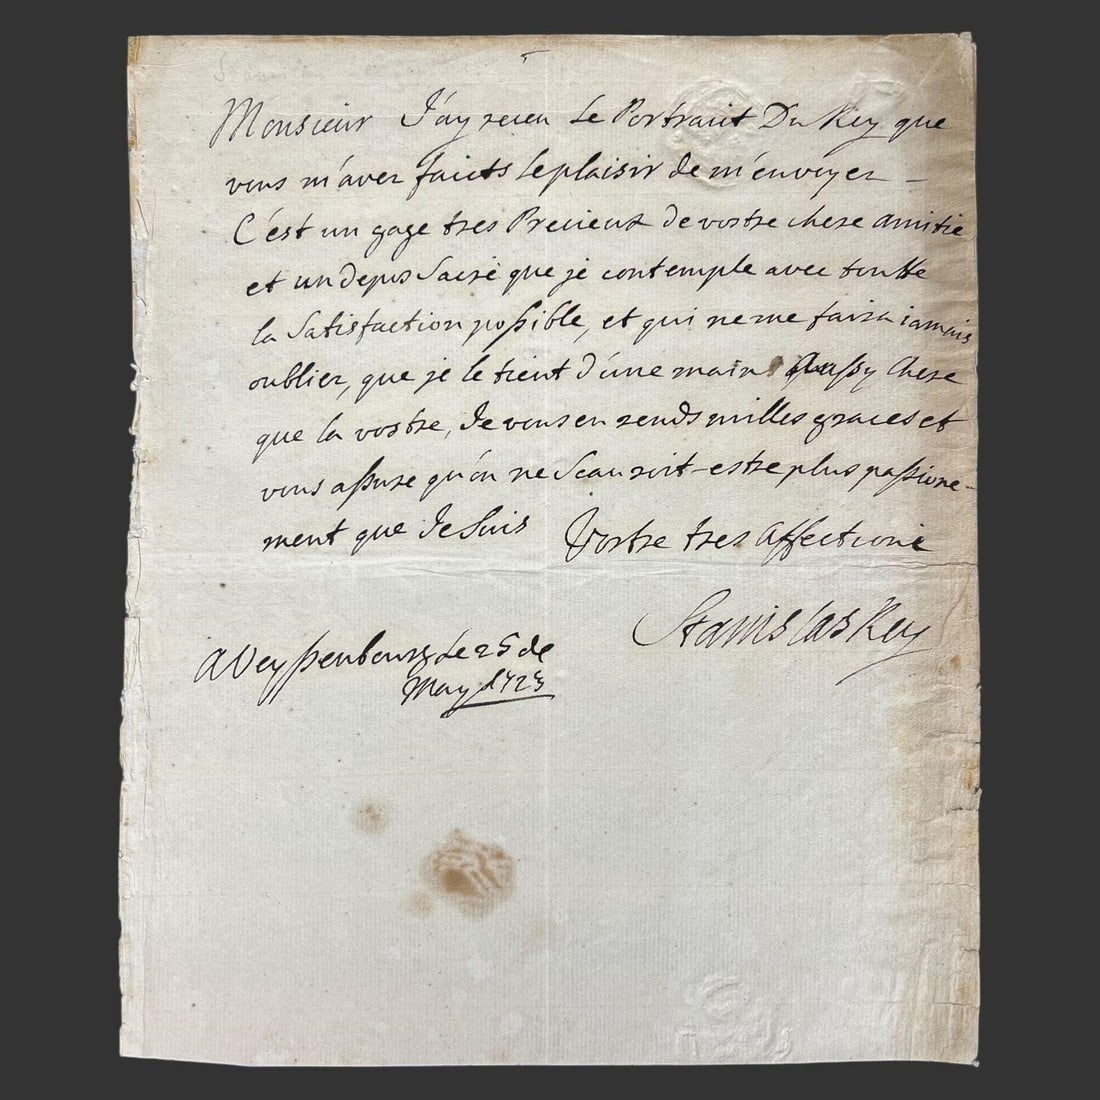 Monsieur J'ay receu le Portrait Du Roy que
vous m'avez faits le plaisir de m'envoyer
C'est un gage tres Precieux de vostre chere amitie
et un depos Sacré que je contemple avec toutte
la Satisfaction possible, et qui ne me faira iamais
oublier, que je le tient d'une main aussy chere
que la vostre, Je vous en rends milles graces et
vous assure qu'on ne Scauroit estre plus passione-
ment que Je Suis Vostre tres affectioné
Stanislas Roy
a Veyssenbourg le 25 de
May 1723